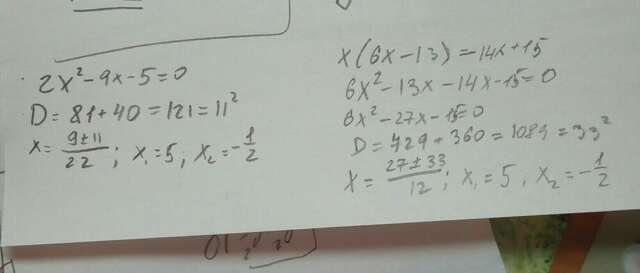 2x²-9x-5=0
D=81+40=121=11²
x=(9±11)/22; x₁=5, x₂=-1/2
x(6x-13)=14x+15
6x²-13x-14x-15=0
6x²-27x-15=0
D=729+360=1089=33²
x=(27±33)/12; x₁=5, x₂=-1/2